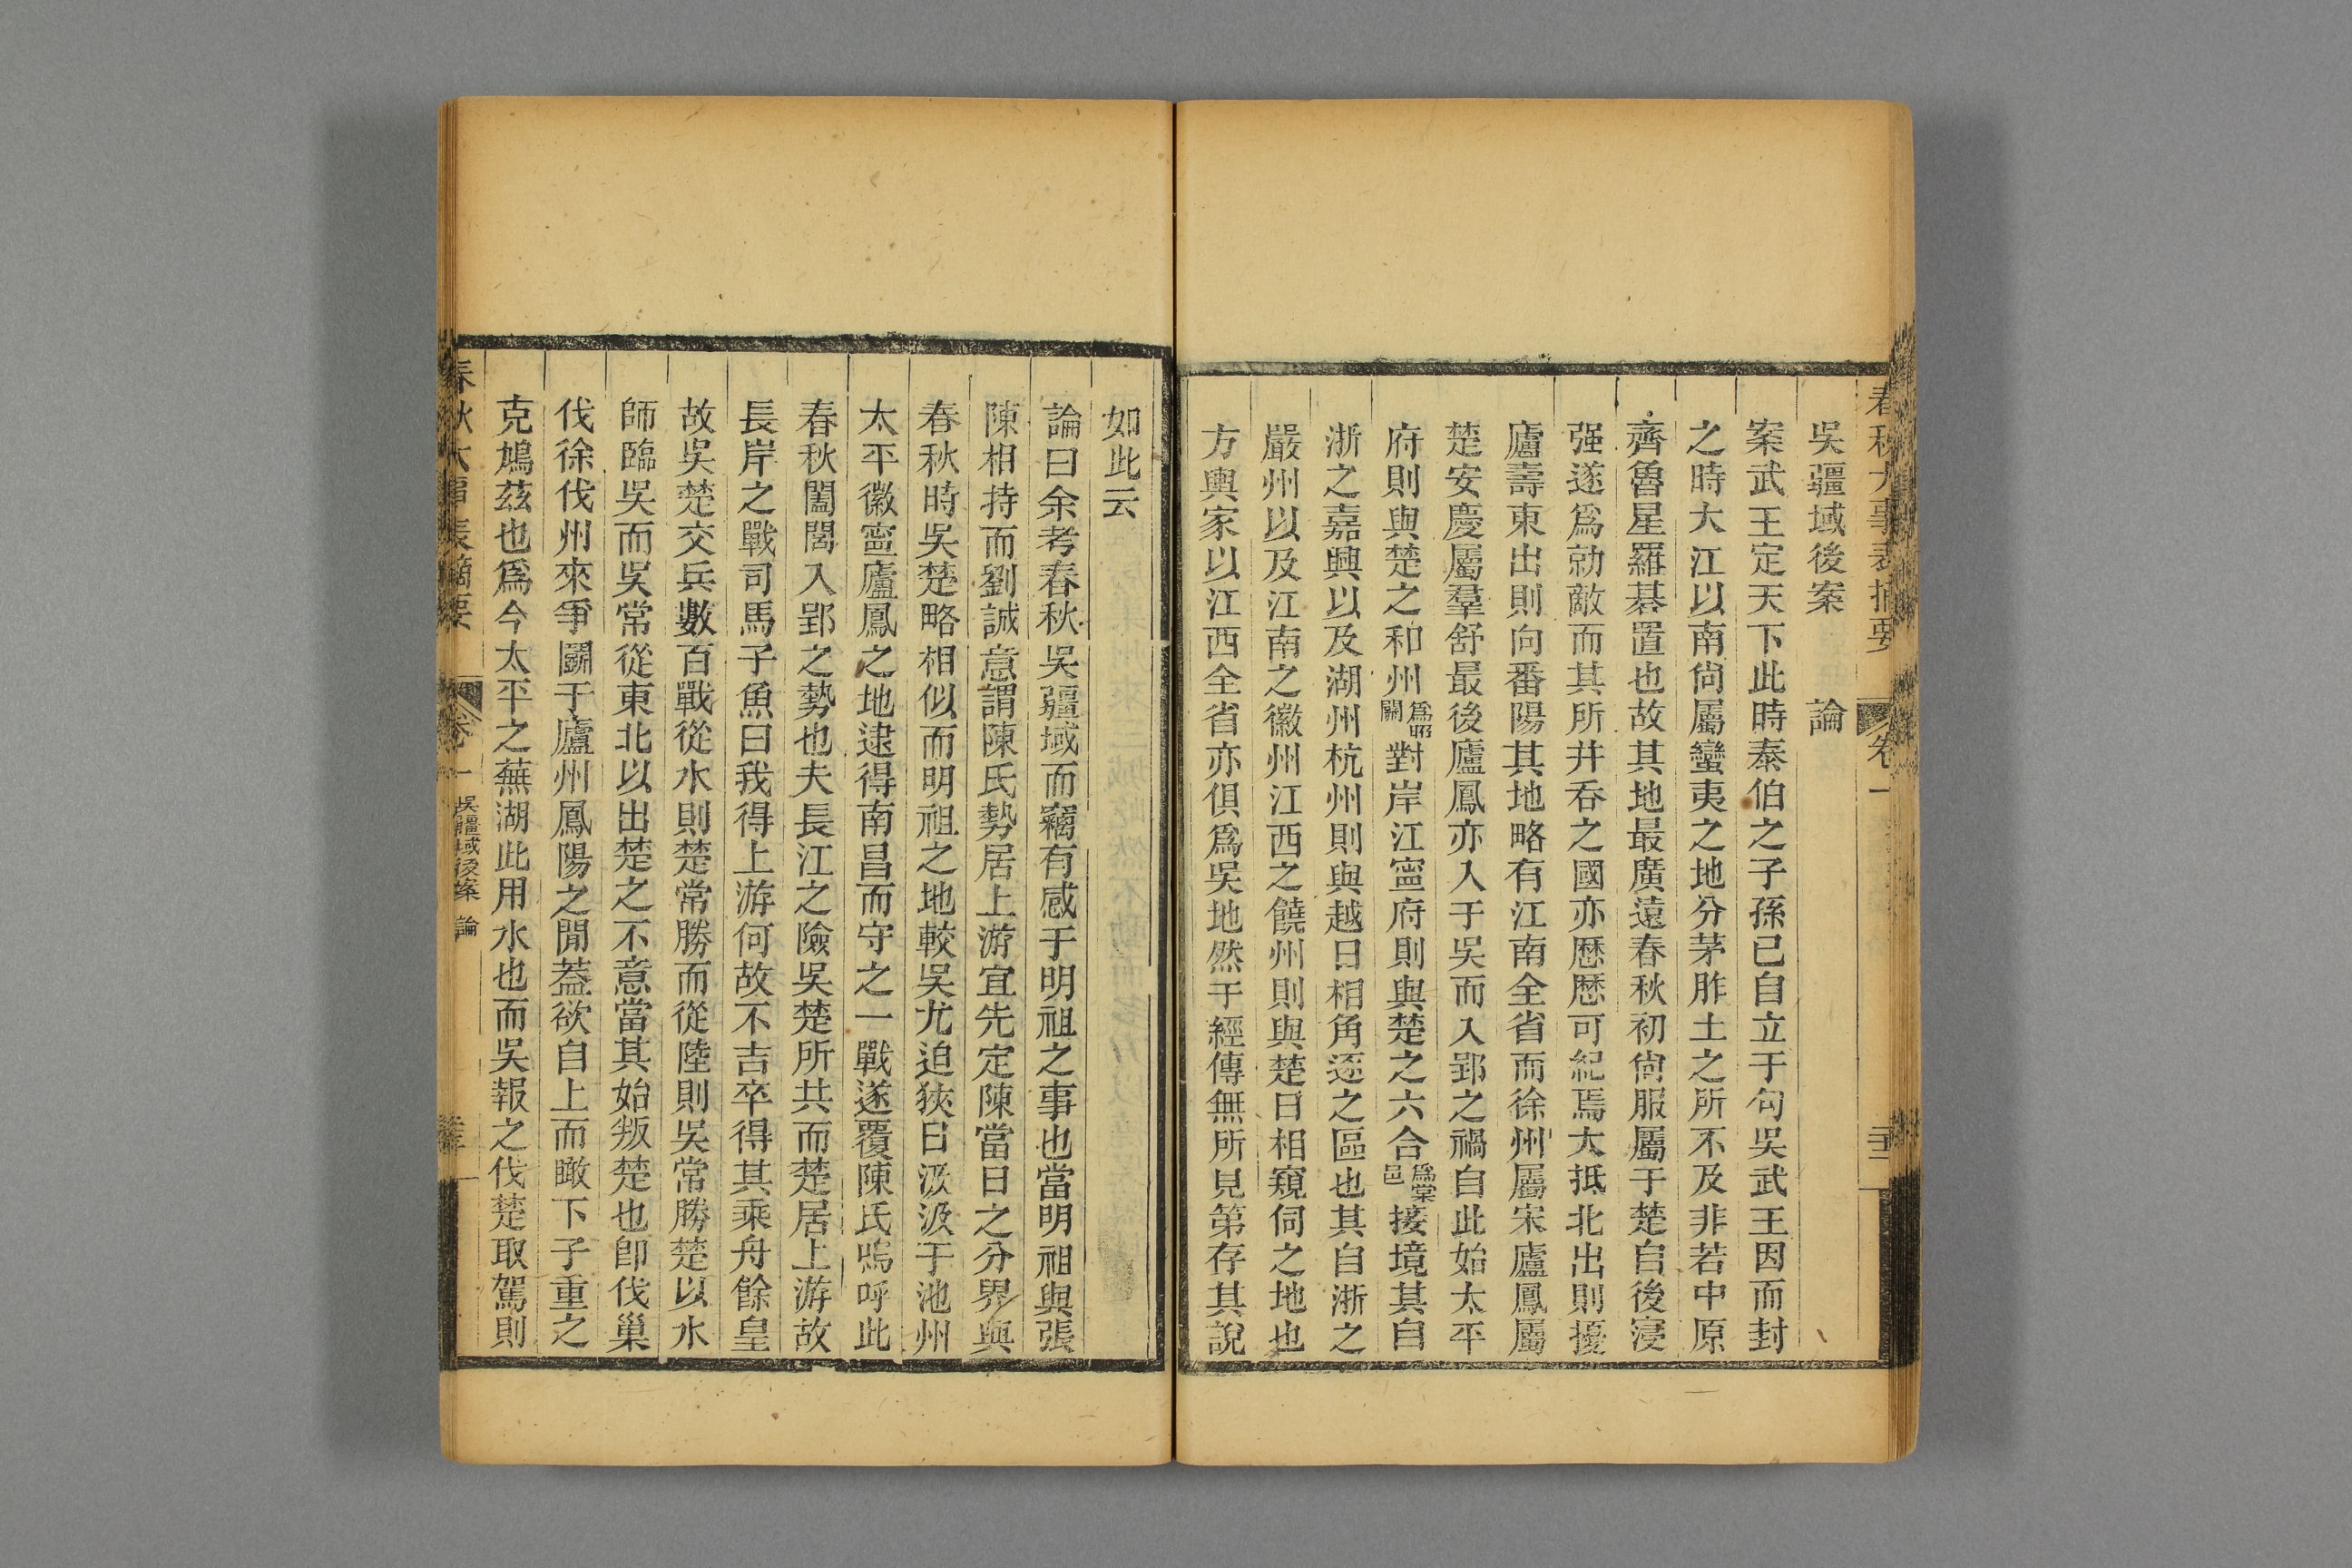 春秋大事表摘要 卷一
吳疆域後案 論
案武王定天下此時泰伯之子孫已自立于句吳武王因而封
之時大江以南尙屬蠻夷之地分茅胙土之所不及非若中原
齊魯星羅碁置也故其地最廣遠春秋初尙服屬于楚自後寖
强遂爲勍敵而其所幷吞之國亦歴歴可紀焉大抵北出則擾
廬壽東出則向番陽其地略有江南全省而徐州屬宋廬鳳屬
楚安慶屬羣舒最後廬鳳亦入于吳而入郢之禍自此始太平
府則與楚之和州爲昭關對岸江寧府則與楚之六合爲棠邑接境其自
浙之嘉興以及湖州杭州則與越日相角逐之區也其自浙之
嚴州以及江南之徽州江西之饒州則與楚日相窺伺之地也
方輿家以江西全省亦俱爲吳地然于經傳無所見第存其說
如此云
論曰余考春秋吳疆域而竊有感于明祖之事也當明祖與張
陳相持而劉誠意謂陳氏勢居上游宜先定陳當日之分界與
春秋時吳楚略相似而明祖之地較吳尤迫狹日汲汲于池州
太平徽寧廬鳳之地逮得南昌而守之一戰遂覆陳氏嗚呼此
春秋闔閭入郢之勢也夫長江之險吳楚所共而楚居上游故
長岸之戰司馬子魚曰我得上游何故不吉卒得其乘舟餘皇
故吳楚交兵數百戰從水則楚常勝而從陸則吳常勝楚以水
師臨吳而吳常從東北以出楚之不意當其始叛楚也卽伐巢
伐徐伐州來爭鬬于廬州鳳陽之閒蓋欲自上而瞰下子重之
克鳩茲也爲今太平之蕪湖此用水也而吳報之伐楚取駕則
春秋大事表摘要 卷一 吳疆域後案 論